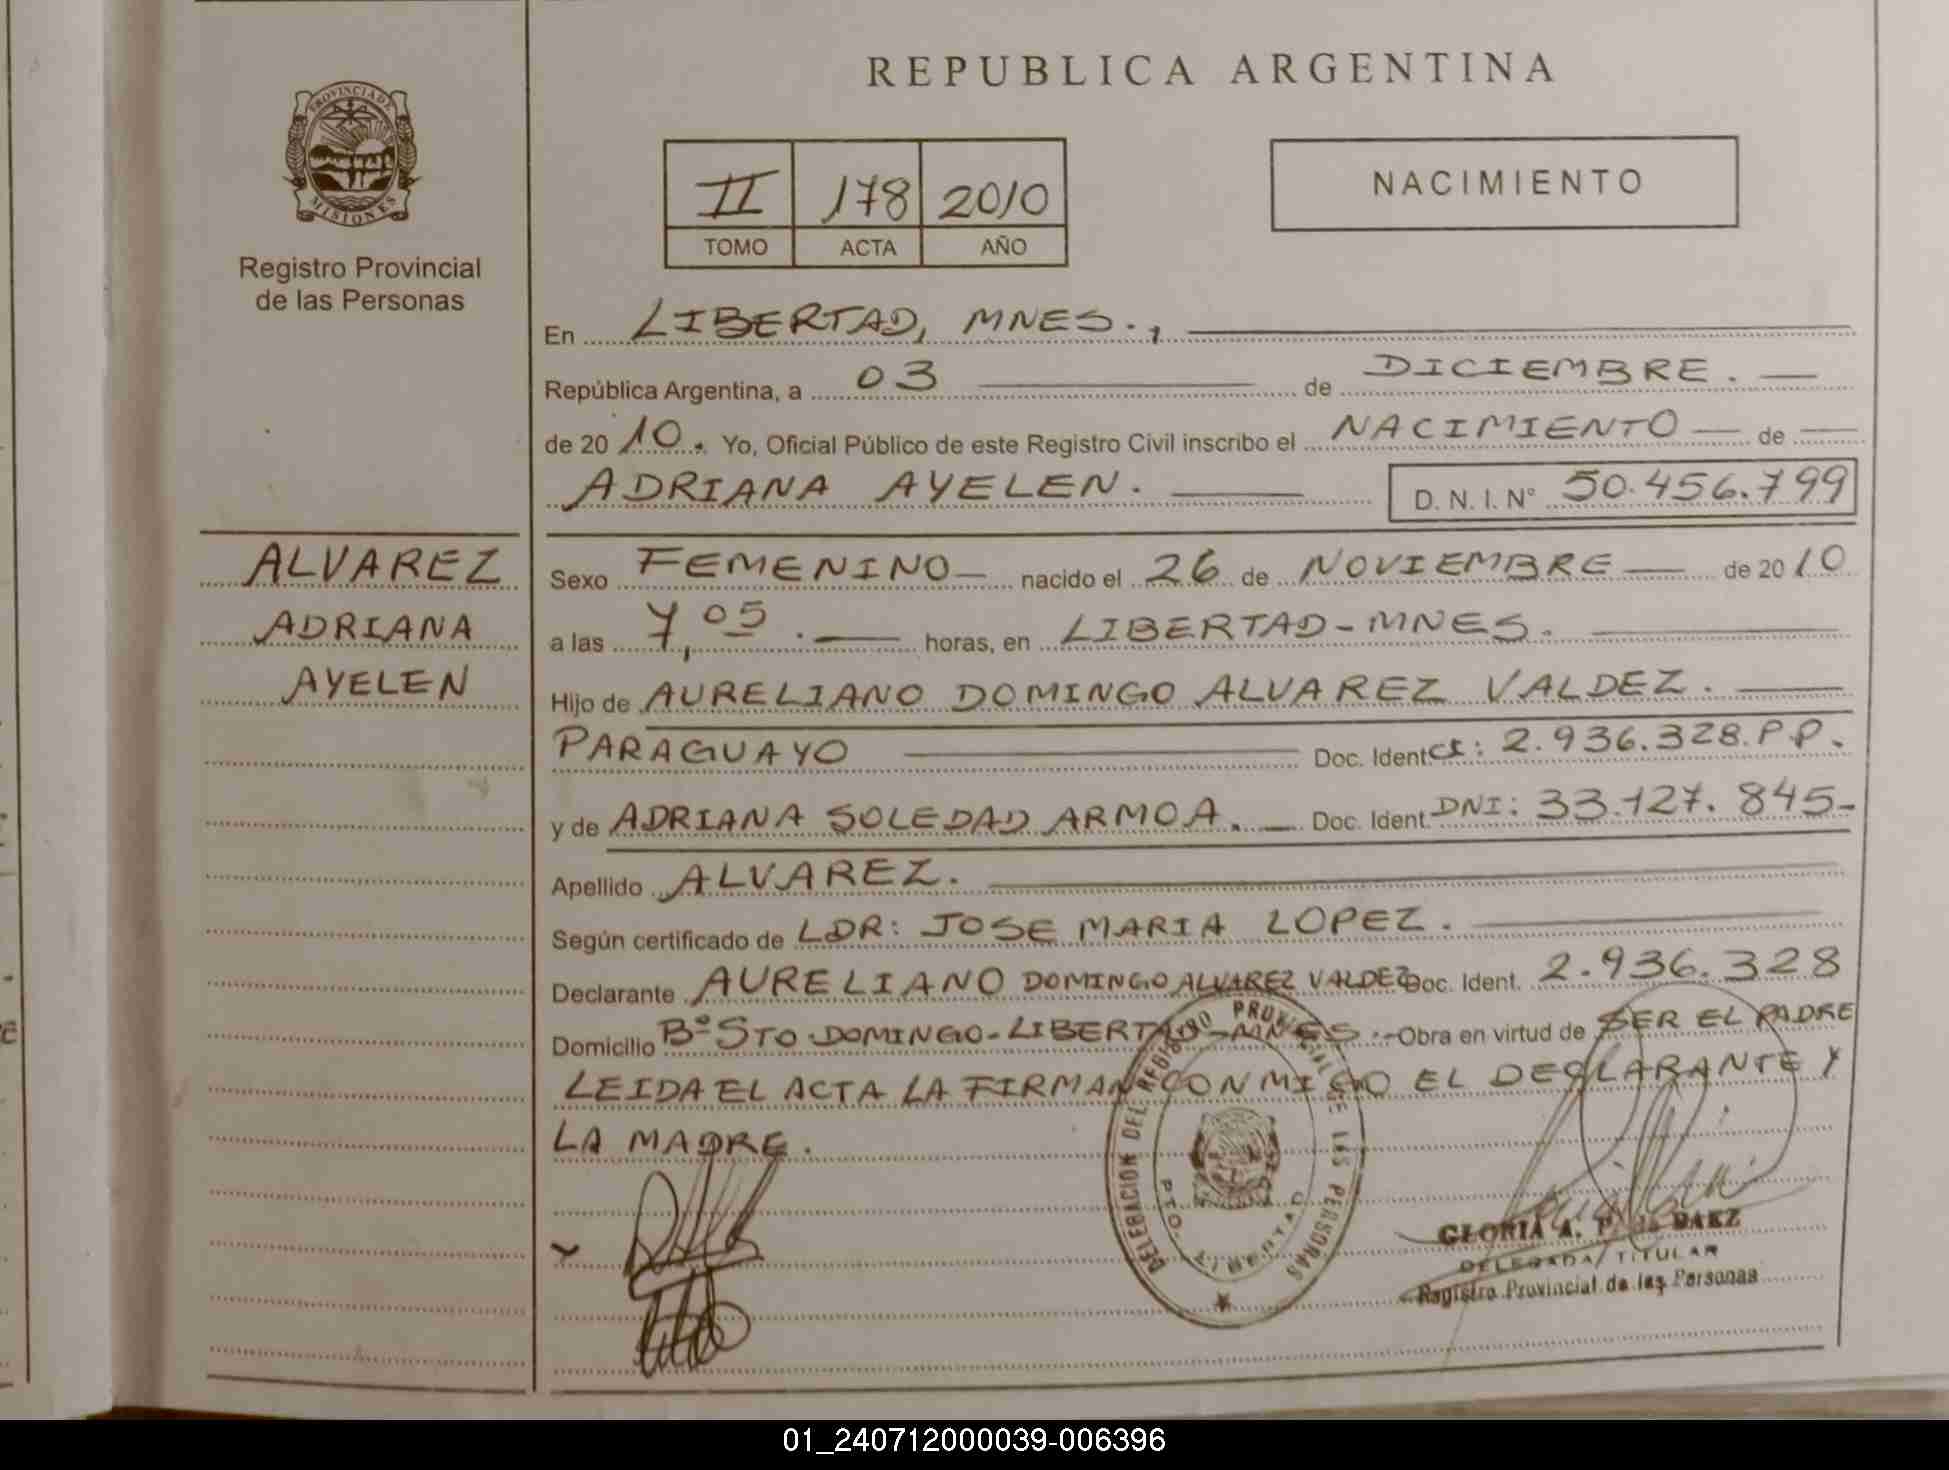 REPUBLICA ARGENTINA
PROVINCIA DE
MISIONES
Registro Provincial
de las Personas
II 178 2010
TOMO ACTA AÑO
NACIMIENTO
En LIBERTAD, MNES.,
República Argentina, a 03 de DICIEMBRE.
de 2010. Yo, Oficial Público de este Registro Civil inscribo el NACIMIENTO de
ADRIANA AYELEN. D. N. I. Nº 50.456.799
ALVAREZ
ADRIANA
AYELEN
Sexo FEMENINO nacido el 26 de NOVIEMBRE de 2010
a las 7,05. horas, en LIBERTAD-MNES.
Hijo de AURELIANO DOMINGO ALVAREZ VALDEZ.
PARAGUAYO Doc. Ident CI: 2.936.328.P.P.
y de ADRIANA SOLEDAD ARMOA. Doc. Ident. DNI: 33.127.845-
Apellido ALVAREZ.
Según certificado de LDR: JOSE MARIA LOPEZ.
Declarante AURELIANO DOMINGO ALVAREZ VALDEZ Doc. Ident. 2.936.328
Domicilio Bº STO. DOMINGO-LIBERTAD-MNES.- Obra en virtud de SER EL PADRE
LEIDA EL ACTA LA FIRMAN CONMIGO EL DECLARANTE Y
LA MADRE.
DELEGACION DEL REGISTRO PROVINCIAL DE LAS PERSONAS
PTO. LIBERTAD
GLORIA A. P. de BAEZ
DELEGADA TITULAR
Registro Provincial de las Personas
01_240712000039-006396